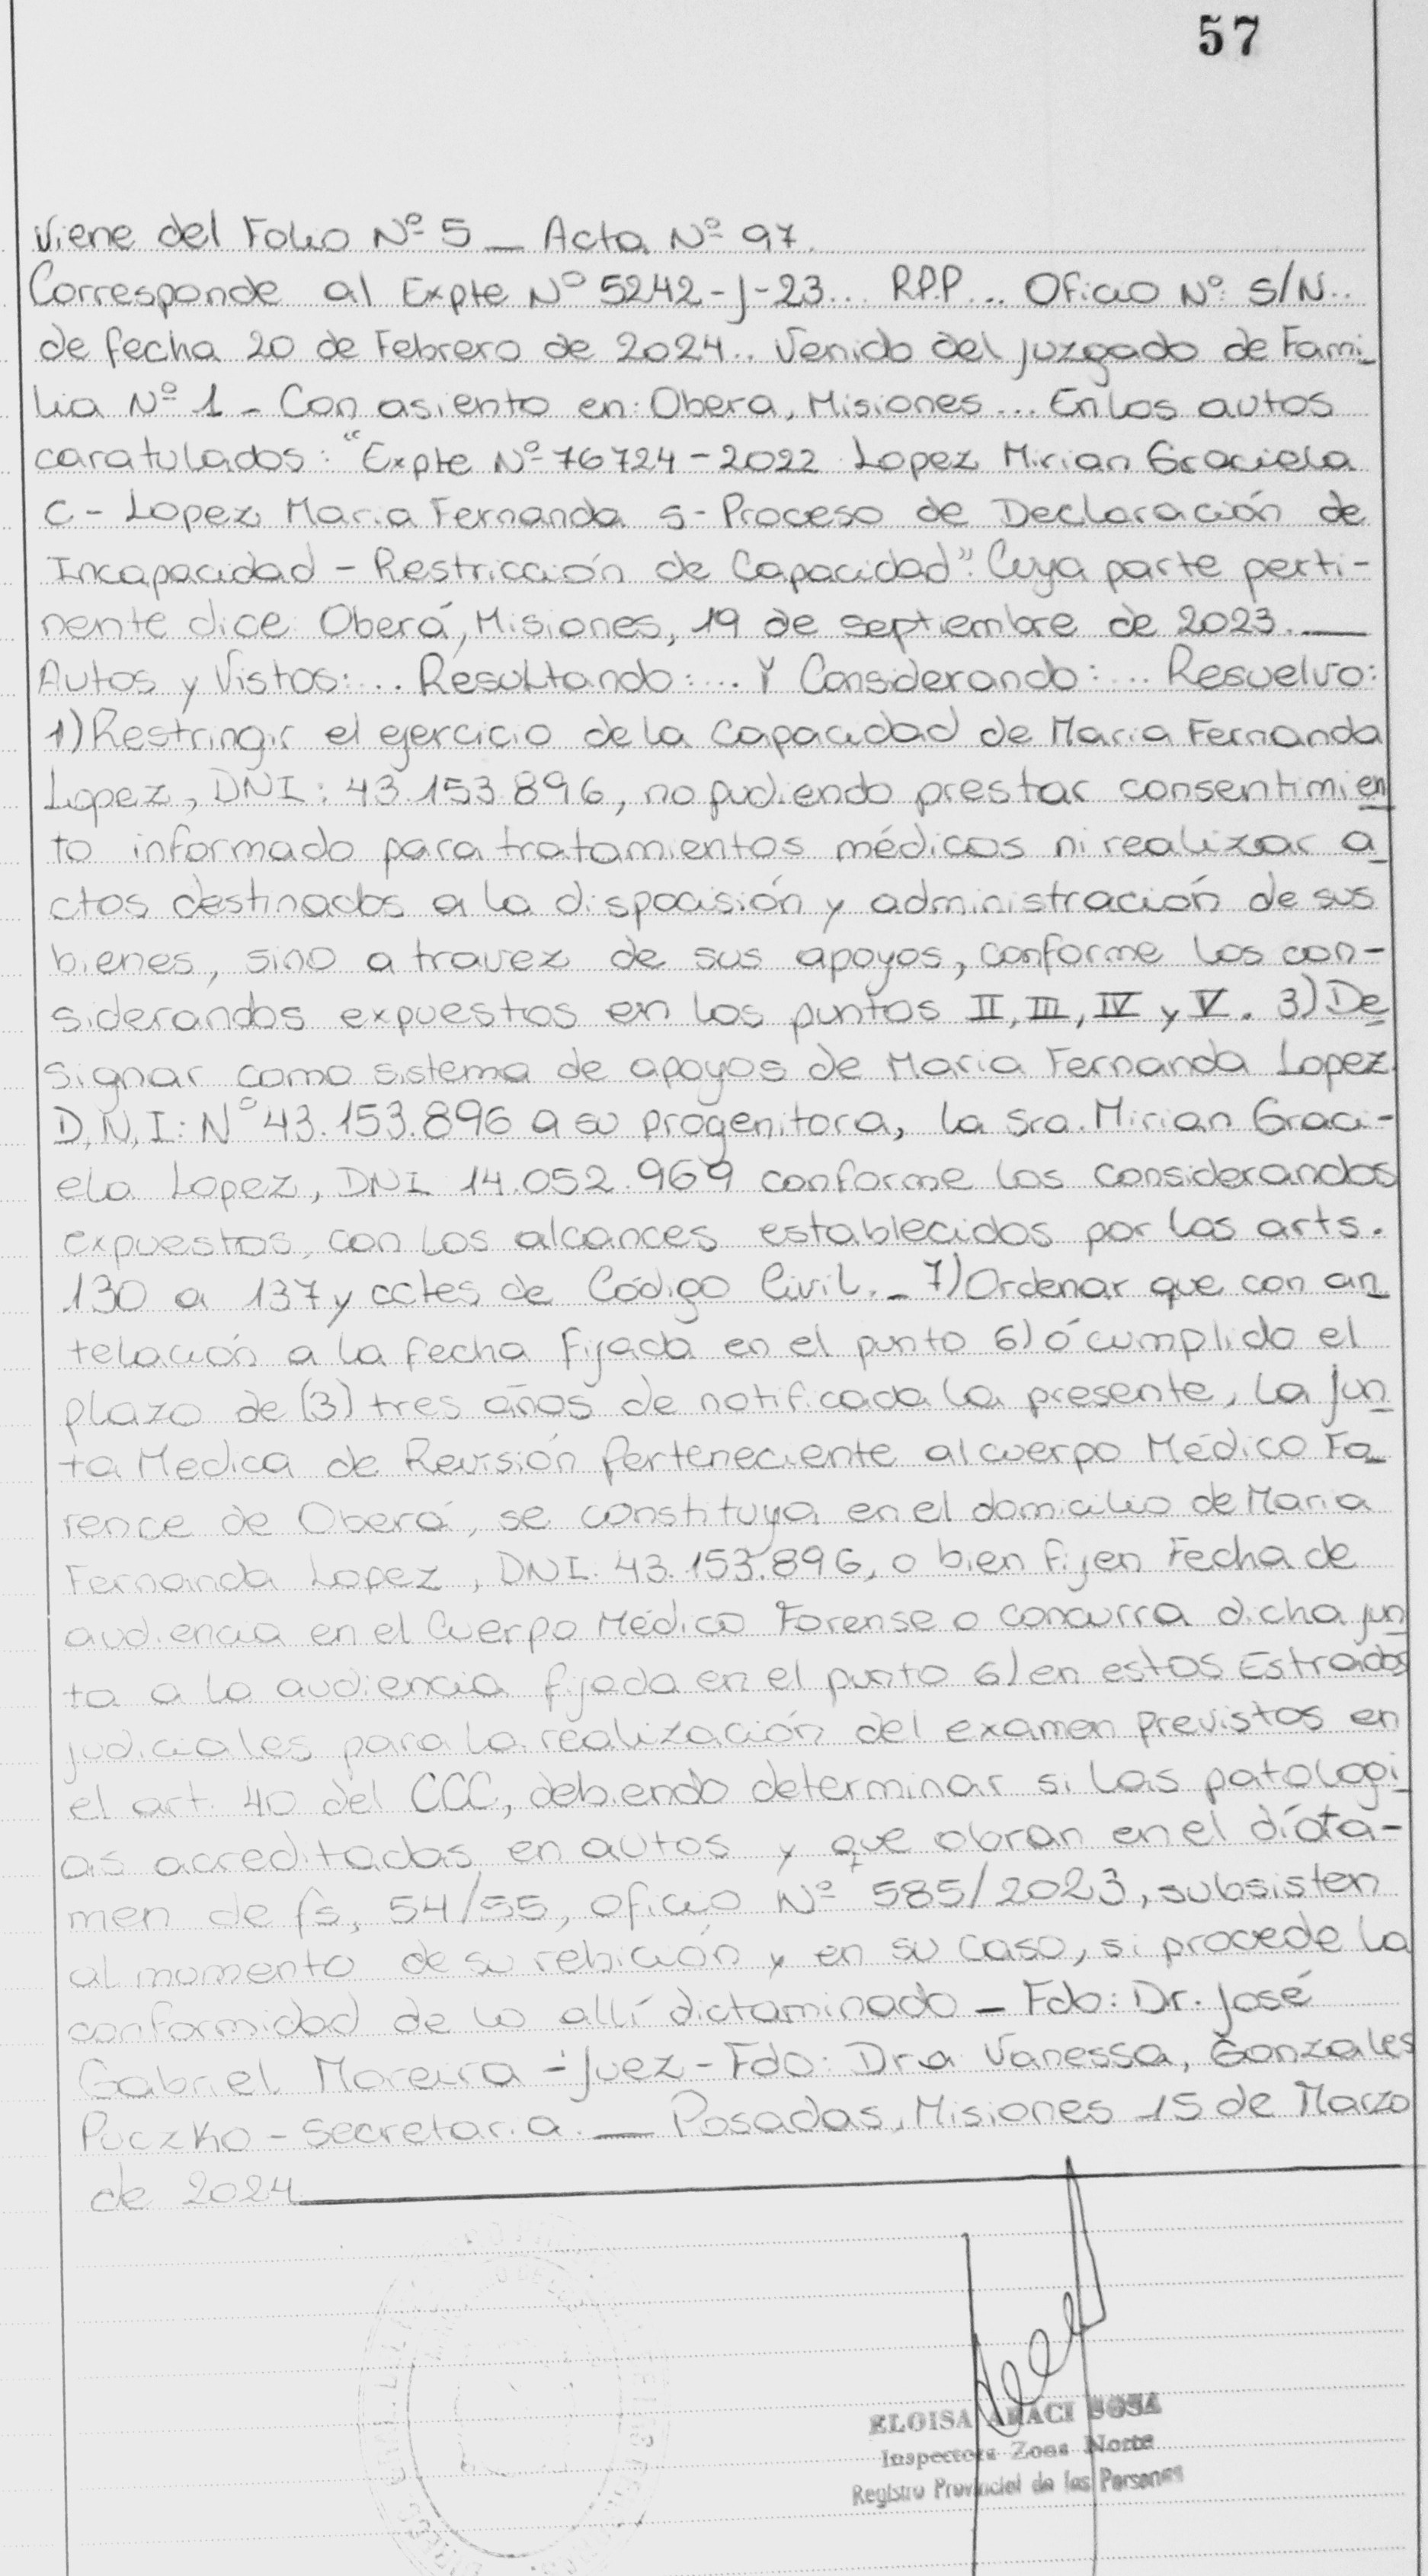 57
Viene del Folio Nº 5 _ Acta Nº 97.
Corresponde al Expte Nº 5242-J-23... R.P.P... Oficio Nº S/N..
de fecha 20 de Febrero de 2024.. Venido del Juzgado de Fami_
lia Nº 1 - Con asiento en: Obera, Misiones... En los autos
caratulados: "Expte Nº 76724-2022 Lopez Mirian Graciela
C- Lopez Maria Fernanda S- Proceso de Declaración de
Incapacidad - Restricción de Capacidad". Cuya parte perti-
nente dice: Oberá, Misiones, 19 de septiembre de 2023.__
Autos y Vistos:... Resultando:... Y Considerando:... Resuelvo:
1) Restringir el ejercicio de la Capacidad de Maria Fernanda
Lopez, DNI: 43.153.896, no pudiendo prestar consentimien
to informado para tratamientos médicos ni realizar a_
ctos destinados a la dispocisión y administración de sus
bienes, sino a travez de sus apoyos, conforme los con-
siderandos expuestos en los puntos II, III, IV y V. 3) De
signar como sistema de apoyos de Maria Fernanda Lopez
D.N.I: Nº 43.153.896 a su progenitora, la Sra. Mirian Graci-
ela Lopez, DNI 14.052.969 conforme los considerandos
expuestos, con los alcances establecidos por los arts.
130 a 137 y cctes de Código Civil._ 7) Ordenar que con an_
telación a la fecha fijada en el punto 6) ó cumplido el
plazo de (3) tres años de notificada la presente, la Jun_
ta Medica de Revisión Perteneciente al cuerpo Médico Fo_
rence de Oberá, se constituya en el domicilio de Maria
Fernanda Lopez, DNI. 43.153.896, o bien fijen Fecha de
audiencia en el Cuerpo Médico Forense o concurra dicha jun
ta a la audiencia fijada en el punto 6) en estos Estrados
judiciales para la realización del examen previstos en
el art. 40 del CCC, debiendo determinar si las patologi_
as acreditadas en autos y que obran en el dicta-
men de fs, 54/55, oficio Nº 585/2023, subsisten
al momento de su rebición y en su caso, si procede la
conformidad de lo allí dictaminado - Fdo: Dr. José
Gabriel Moreira - Juez - Fdo: Dra Vanessa, Gonzales
Puczko - Secretaria. __ Posadas, Misiones 15 de Marzo
de 2024
ELOISA ARACI SOSA
Inspectora Zona Norte
Registro Provincial de las Personas